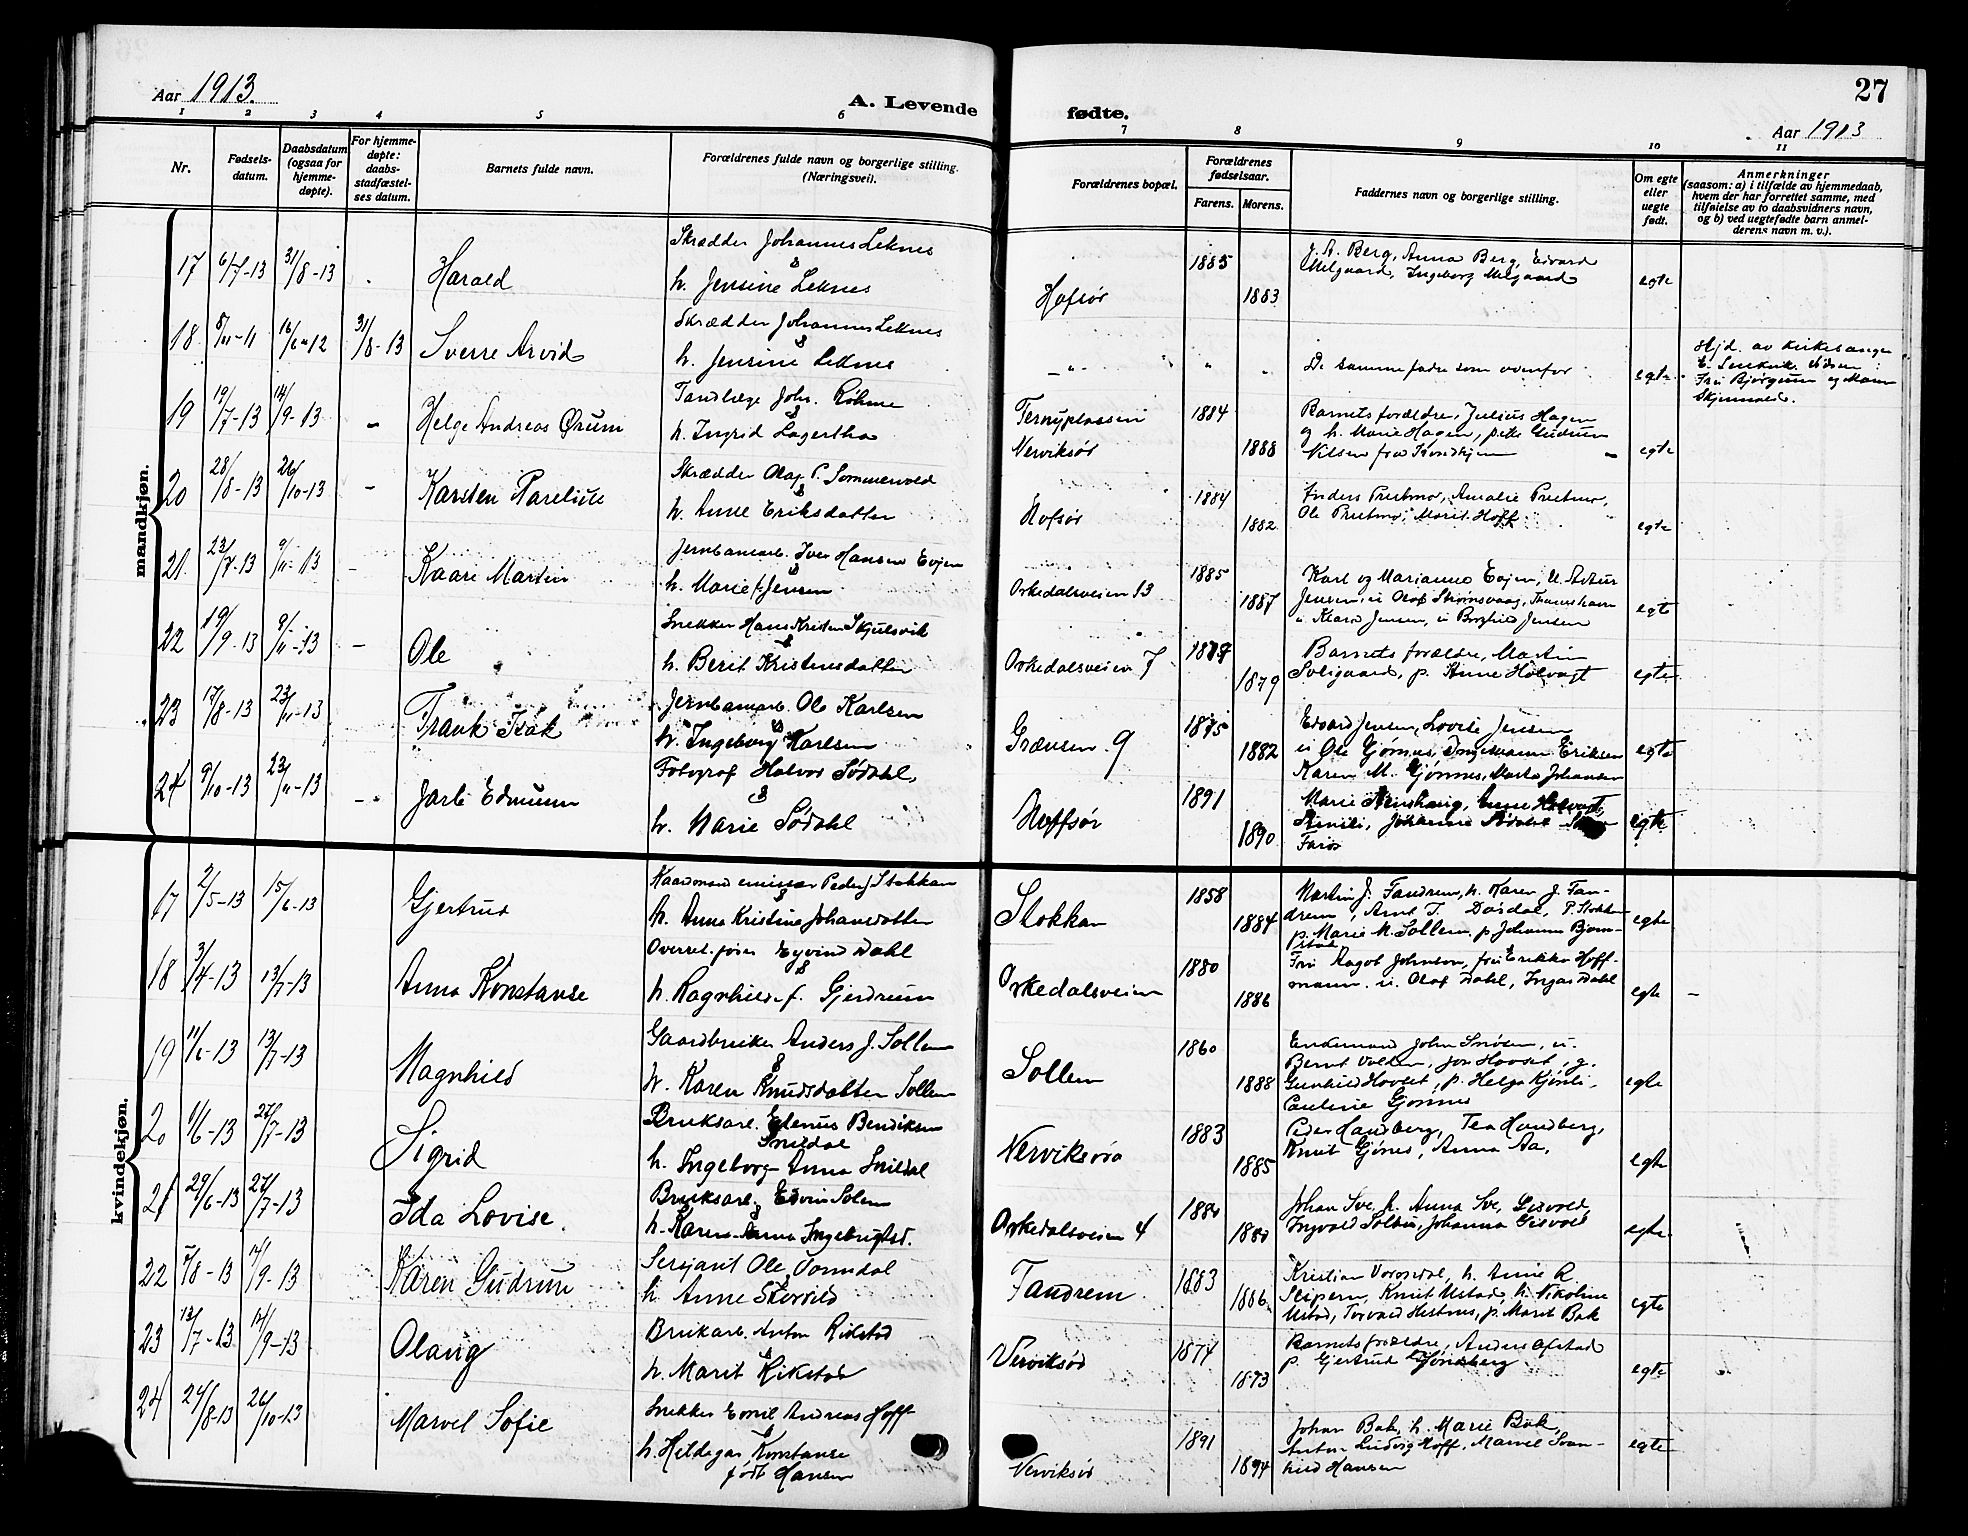 27
Aar 1913.
A. Levende
fødte.
Aar 1913
1 2 3 4 5 6 7 8 9 10 11
Nr.
Fødsels-
datum.
Daabsdatum
(ogsaa for
hjemme-
døpte).
For hjemme-
døpte:
daabs-
stadfæstel-
ses datum.
Barnets fulde navn.
Forældrenes fulde navn og borgerlige stilling.
(Næringsvei).
Forældrenes bopæl.
Forældrenes
fødselsaar.
Farens. Morens.
Faddernes navn og borgerlige stilling.
Om egte
eller
uegte
født.
Anmerkninger
(saasom: a) i tilfælde av hjemmedaab,
hvem der har forrettet samme, med
tilføielse av to daabsvidners navn,
og b) ved uegtefødte barn anmel-
derens navn m. v.).
mandkjøn.
17 6/7-13 31/8-13 Harald
Skrædder Johannes Leknes
&
h. Jensine Leknes
Hofsør 1885 1883
J. A. Berg, Anna Berg, Edvard
Melgaard, Ingeborg Melgaard
egte
18 8/11-11 16/6-12 31/8-13 Sverre Arvid
Skrædder Johannes Leknes
&
h. Jensine Leknes
De samme fadre som ovenfor
egte
Hjd. av kirkesanger
Fru Bjørgum og
19 19/7-13 14/9-13 - Helge Andreas Ørum
Tandlæge Johs. Røhme
&
h. Ingrid Lagertha
Nerviksør 1884 1888
Barnets forældre, Julius Hagen
og h. Marie Hagen, pike Gudrun
Nilsen fra Trondhjem
egte
20 28/8-13 26/10-13 - Karsten Parelius
Skrædder Olaf P. Sommervold
&
h. Anne Eriksdatter
Hofsør 1884 1882
Anders Prestmo, Amalie Prestmo,
Ole Prestmo, Marit Hoff
egte
21. 23/7-13 9/11-13 - Kaare Martin
Jernbanearb. Iver Hansen Evjen
&
h. Marie f. Jensen
Orkedalsveien 13 1885 1887
Karl og Marianne Evjen, U. Artur
Jensen, u Olaf Strømsvaag,
u Klara Jensen, u Borghild Jensen
egte
22 19/9-13 9/11-13 - Ole
Snekker Hans Kristen Skjulsvik
&
h. Berit Kristensdatter
Orkedalsveien 7 1879
Barnets forældre, Martin
Soligaard, p. Anne Holvagt
egte
23 17/8-13 23/11-13 - Frank Isak
Jernbanearb. Ole Karlsen
&
h. Ingeborg Karlsen
Grænsen 9 1875 1882
Edvard Jensen, Lovise Jensen
u Ole Gjønnes, Eriksen
Karen M. Gjønnes, Marta Johansen
egte
24 9/10-13 23/11-13 - Jarle Edmunn
Fotograf Halvor Sødahl,
&
h. Marie Sødahl
Hoffsør 1891 1890
Marie Anne Holvagt,
Johanne Sødahl
egte
kvindekjøn.
17 2/5-13 15/6-13 Gjertrud
Peder J Stokkan
&
h. Anna Kristine Johansdatter
Stokkan 1858 1884
Martin J. Fandrem, h. Karen J. Fan-
drem, Arnt T. Dørdal, P. Stokkan
p. Marie M. Sollem, p. Johanna Bjørn-
stad
egte
18 3/4-13 13/7-13 Anna Konstanse
Overret. fører Eyvind Dahl
&
h. Ragnhild f. Gjerdrum
Orkedalsveien 1880 1886
Fru Dagot Johnson, fru Erikka Hoff-
mann. u. Olaf Dahl, Ingar Dahl
egte -
19 11/6-13 13/7-13 Magnhild
Gaardbruker Anders J. Sollem
&
h. Karen Knudsdatter Sollem
Sollem 1860 1888
Enkemand John Snøen, u.
Bernt Volden, Jon Hovset, g.
Gunhild Hovset, p. Helga Kjønli,
Pauline Gjønnes
egte
20 1/6-13 27/7-13 Sigrid
Bruksarb. Edenus Bendiksen
Snildal
h. Ingeborg Anna Snildal
Nerviksøra 1883 1885
Peder Handberg, Tea Handberg,
Knut Gjønes, Anna Aa,
egte
21 29/6-13 27/7-13 Ida Lovise.
Bruksarb. Edvin Solem
&
h. Karen Anna Ingebrigtsd.
Orkedalsveien 4 1880 1880
Johan Sve, h. Anna Sve, Gisvold,
Ingvald Solbu, Johanna Gisvold
egte
22 5/8-13 14/9-13 Karen Gudrun
Sersjant Ole Vorndal
h. Anne Storvold
Fandrem 1883 1886
Kristian Vorndal, h. Anne R.
Slipern, Knut Ustad, h. Nikoline
Ustad, Torvald Hestnes, p. Marit Bak
egte
23 13/7-13 14/9-13 Olaug
Bruksarb. Anton Rikstad
&
h. Marit Rikstad
Nerviksør 1874 1873
Barnets forældre, Anders Ofstad
p. Gjertrud Tjønsberg
egte
24 24/8-13 26/10-13 Marvel Sofie
Snekker Emil Andreas Hoff
&
h. Heldegar Konstanse
født Hansen
Nerviksør 1891 1894
Johan Bak, h. Marie Bak,
Anton Ludvig Hoff, Marvel Svan-
hild Hansen
egte